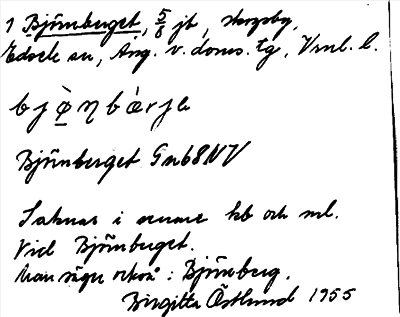 1 Björnberget, 5/8 jb, skogsby,
Edsele sn, Ång. v. doms. tg, Vrml. l.
b j ø̣ ŋ b æ̀ r j e
Björnberget Gnb8NV
Saknas i senare kb och ml.
Vid Björnberget.
Man säger också: Björnberg.
Birgitta Östlund 1955